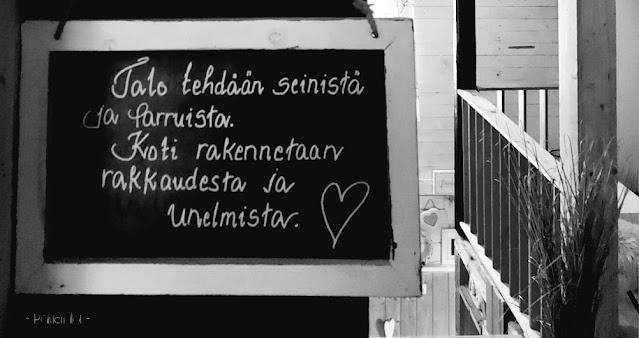 Talo tehdään seinistä
ja parruista.
Koti rakennetaan
rakkaudesta ja
unelmista.